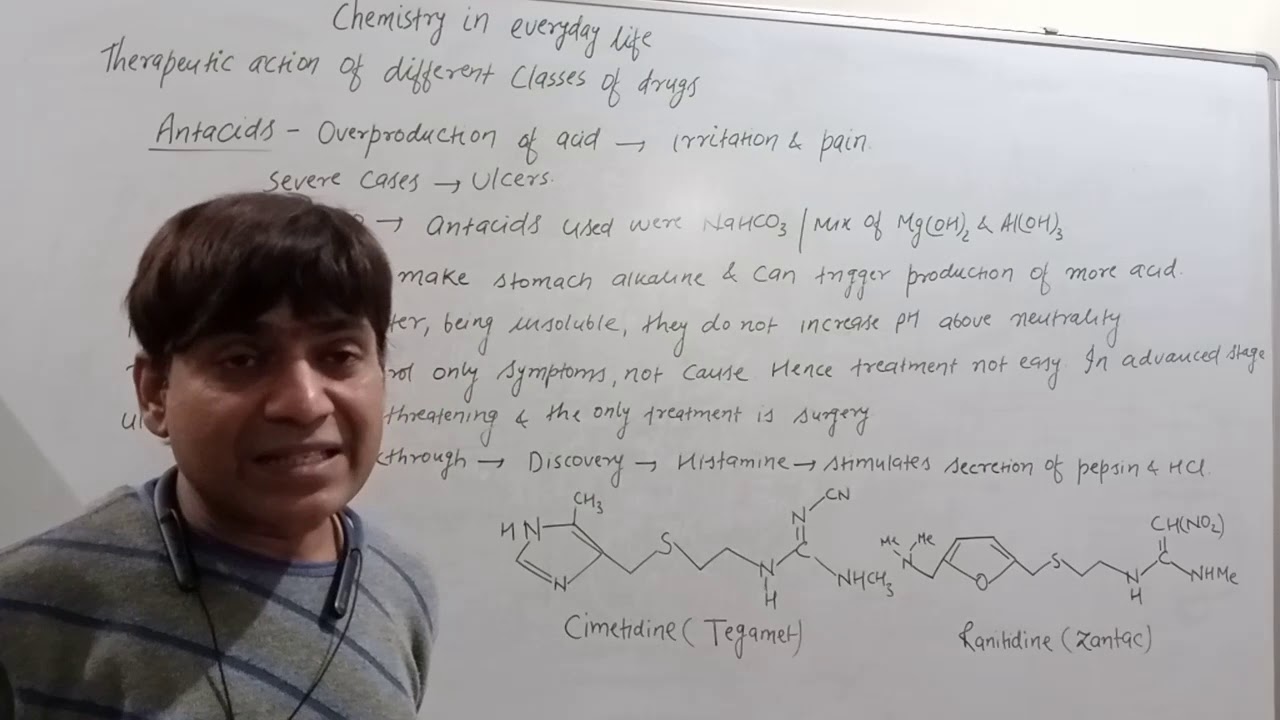 Chemistry in everyday life
Therapeutic action of different Classes of drugs
Antacids - Overproduction of acid → irritation & pain.
Severe cases → Ulcers.
→ Antacids used were NaHCO3 / Mix of Mg(OH)2 & Al(OH)3
make stomach alkaline & can trigger production of more acid.
being insoluble, they do not increase pH above neutrality
only symptoms, not cause. Hence treatment not easy. In advanced stage
threatening & the only treatment is surgery
through → Discovery → Histamine → stimulates secretion of pepsin & HCl.
CH3
HN
N
S
N
H
C
N
CN
NHCH3
Me
Me
N
O
S
N
H
C
CH(NO2)
NHMe
Cimetidine (Tegamet)
Ranitidine (Zantac)